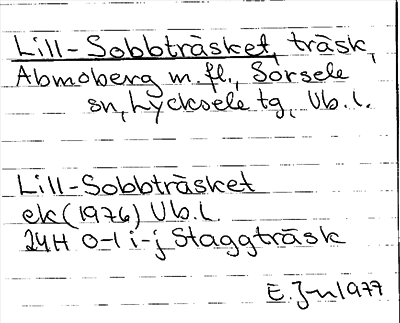 Lill-Sobbträsket, träsk,
Abmoberg m.fl., Sorsele
sn, Lycksele tg, Vb.l.
Lill-Sobbträsket
ek (1976) Vb.l.
24H 0-1 i-j Staggträsk
E. Jn 1977